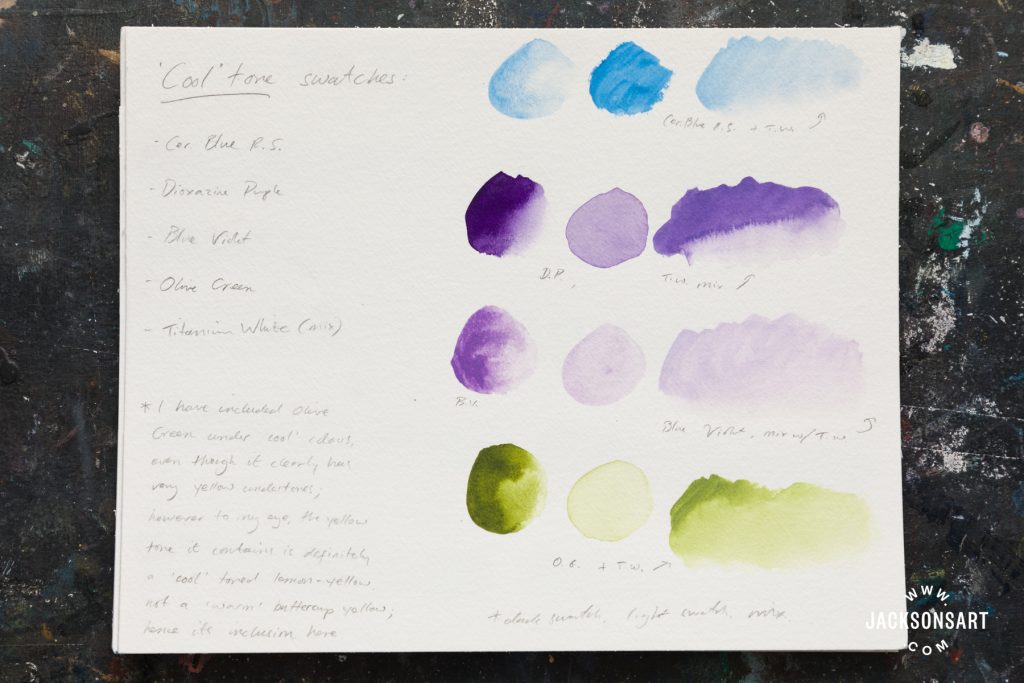 'Cool' tone swatches:
- Cer. Blue R.S.
- Dioxazine Purple
- Blue Violet
- Olive Green
- Titanium White (mix)
* I have included Olive
Green under 'cool' colours,
even though it clearly has
very yellow undertones;
however to my eye, the yellow
tone it contains is definitely
a 'cool' toned lemon-yellow
not a 'warm' buttercup yellow;
hence its inclusion here
Cer. Blue R.S. + T.W. ↗
D.P.,
T.W. mix ↗
B.V.
Blue Violet, mix w/ T.W. ↗
O.G. + T.W. ↗
* dark swatch, light swatch, mix.
WWW.
JACKSONSART
.COM